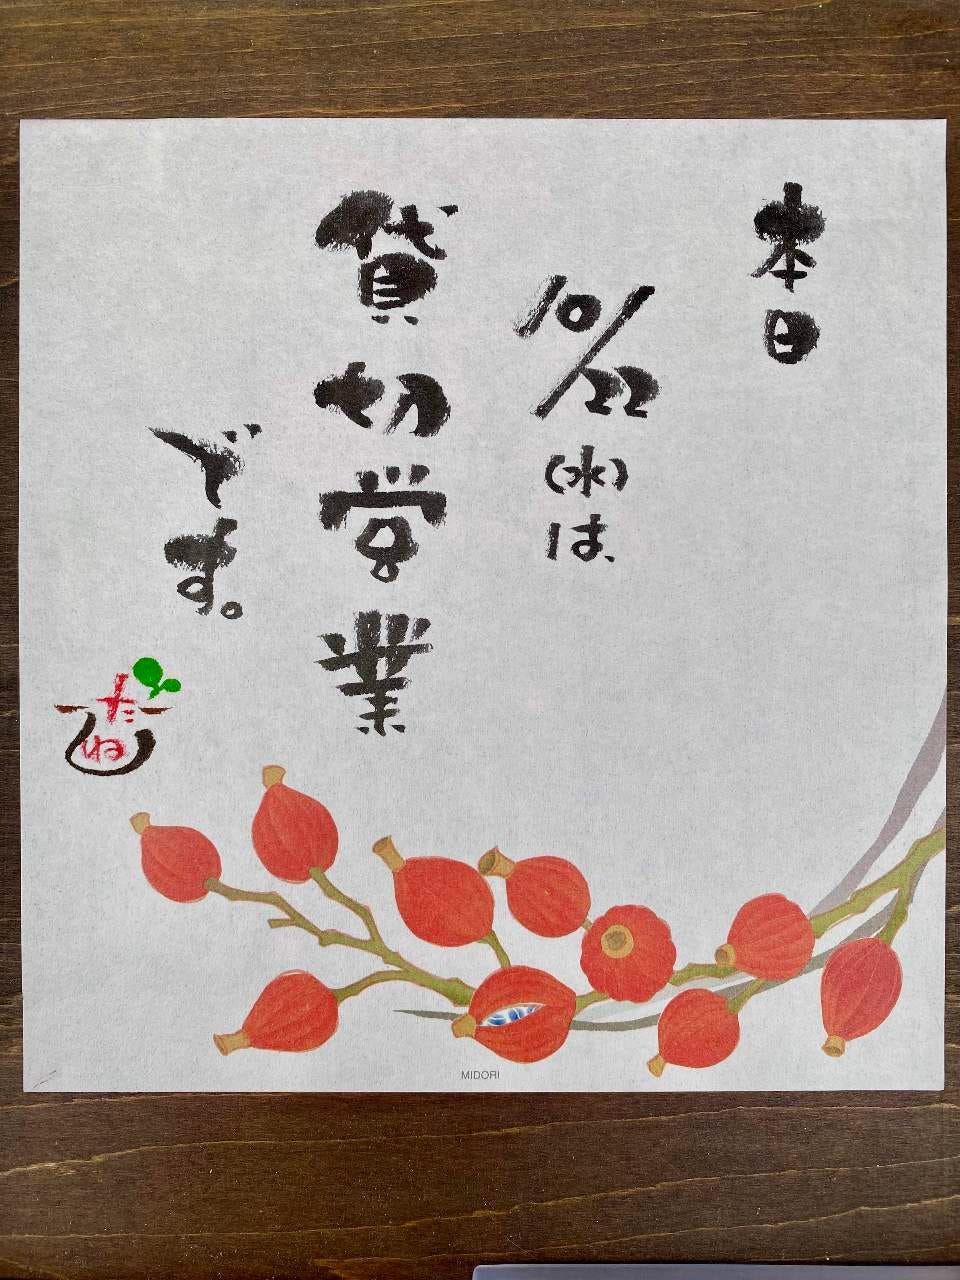 本日
10/22(水)は、
貸切営業
です。
たね
MIDORI